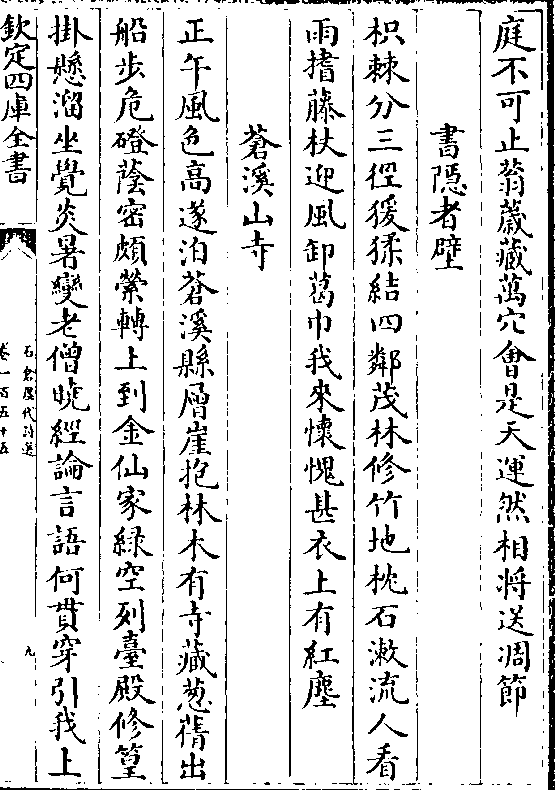 庭不可止蓊薉藏萬穴會是天運然相將送凋節
書隠者壁
枳棘分三徑猨猱結四鄰茂林修竹地枕石漱流人看
雨搘藤杖迎風卸葛巾我來懐愧甚衣上有紅塵
蒼溪山寺
正午風色高遂泊蒼溪縣層崖抱林木有寺藏葱蒨出
船步危磴蔭密頗縈轉上到金仙家緑空列臺殿修篁
掛懸溜坐覺炎暑變老僧曉經論言語何貫穿引我上
欽定四庫全書
石倉歷代詩選
卷一百五十五
九